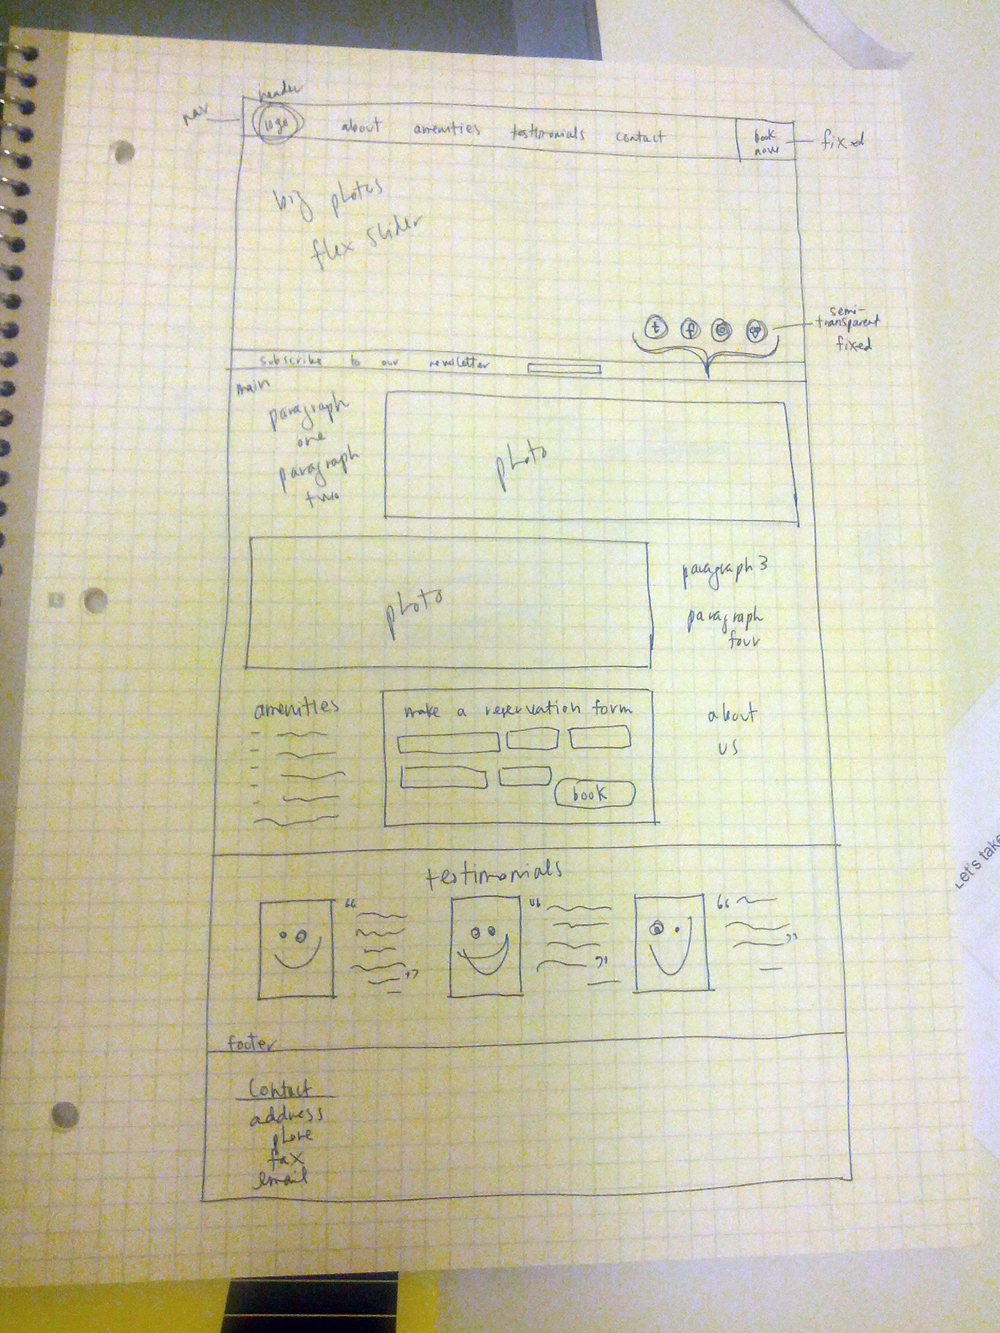 header
nav
logo about amenities testimonials contact book now
fixed
big photos
flex slider
semi-
transparent
fixed
t f
subscribe to our newsletter
main
paragraph
one
paragraph
two
photo
photo
paragraph 3
paragraph
four
amenities
make a reservation form
book
about
us
testimonials
footer
Contact
address
phone
fax
email
Let's take